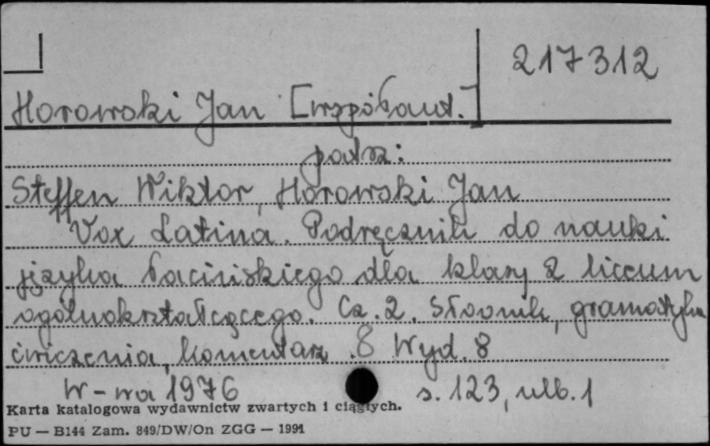 217312
Horowski Jan [współaut.]
patrz:
Steffen Wiktor, Horowski Jan
Vox Latina. Podręcznik do nauki
języka łacińskiego dla klasy 2 liceum
ogólnokształcącego. Cz. 2. Słownik, gramatyka
ćwiczenia, komentarz. 8 Wyd. 8
W-wa 1976 s. 123, nlb. 1
Karta katalogowa wydawnictw zwartych i ciągłych.
PU — B144 Zam. 849/DW/On ZGG — 1991